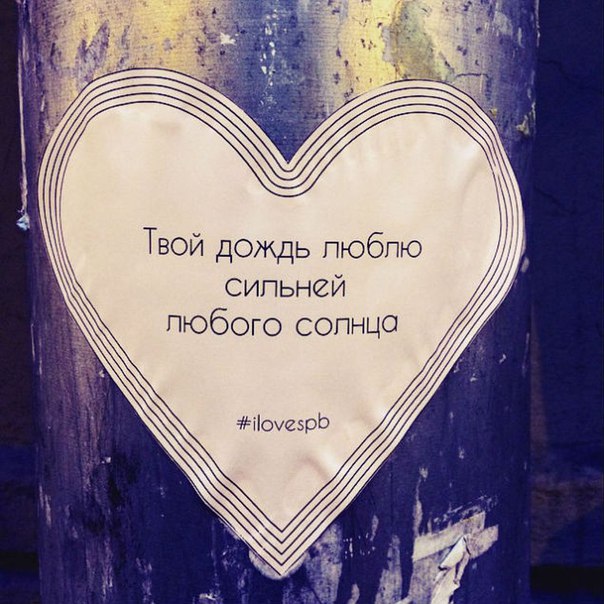 Твой дождь люблю
сильней
любого солнца
#ilovespb